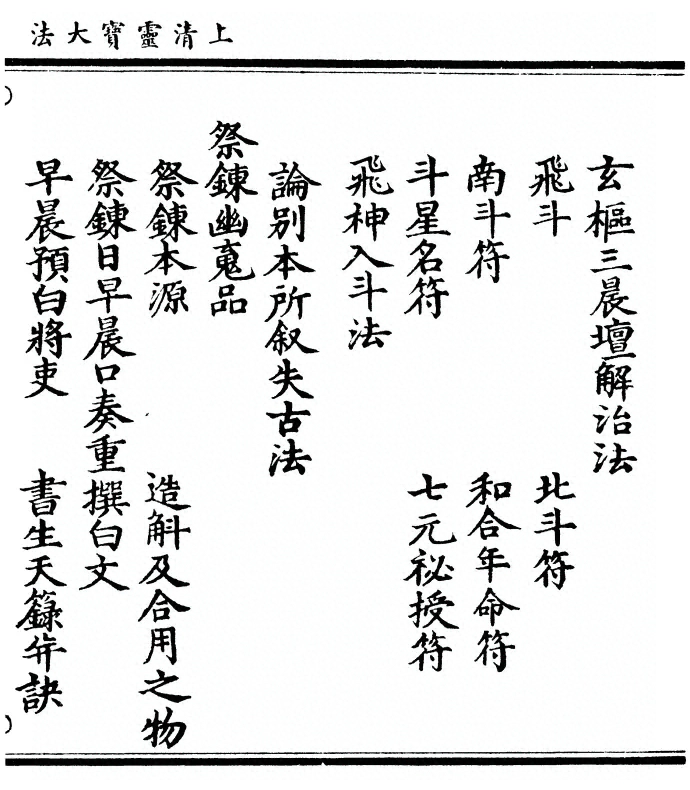 上清靈寶大法
玄樞三晨壇解治法
飛斗　北斗符
南斗符　和合年命符
斗星名符　七元祕授符
飛神入斗法
論別本所叙失古法
祭鍊幽䰟品
祭鍊本源　造斛及合用之物
祭鍊日早晨口奏重撰白文
早晨預白將吏　書生天籙并訣